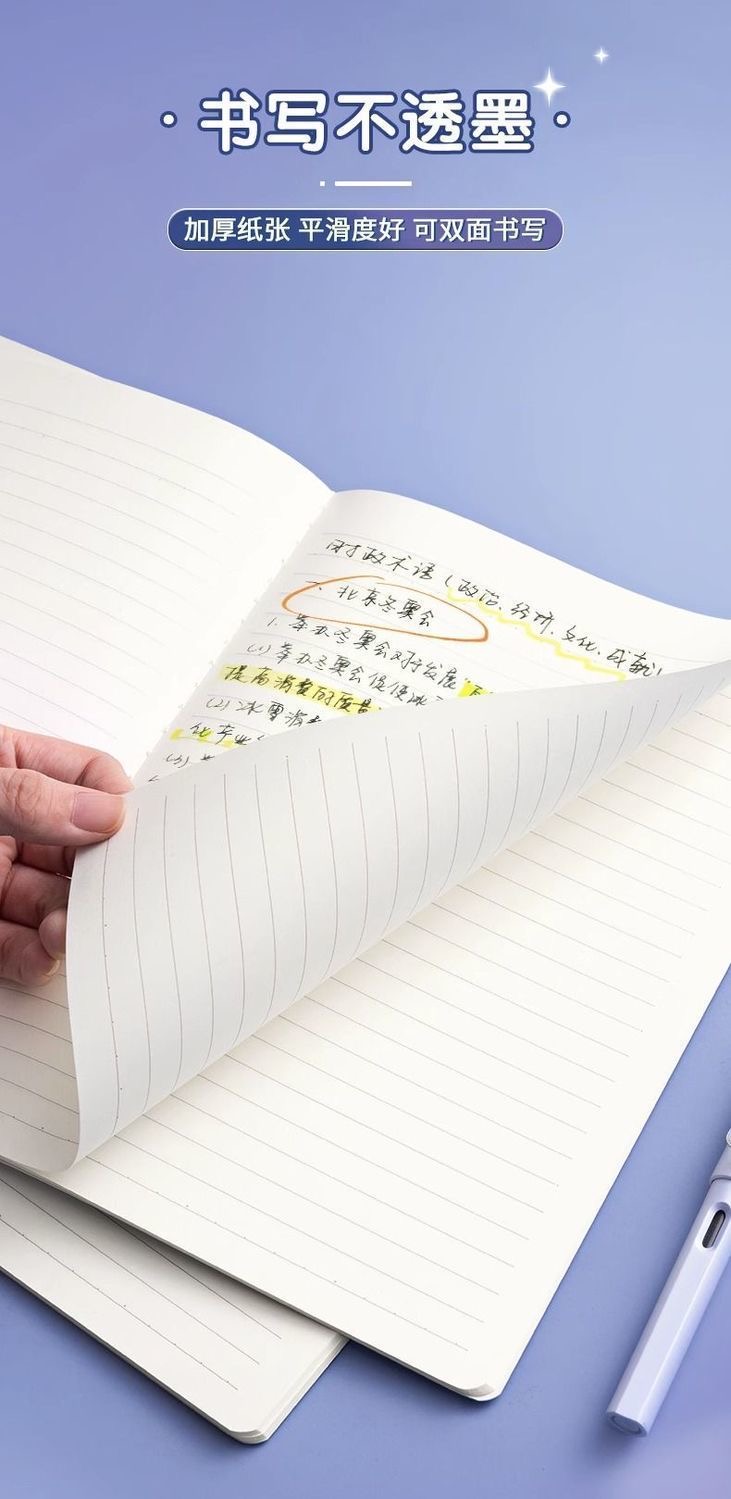 书写不透墨
加厚纸张 平滑度好 可双面书写
时政术语(政治、经济、文化、成就)
一、北京冬奥会
1. 举办冬奥会对于发展
(1) 举办冬奥会促使冰
提高消费的质量
(2) 冰雪消
化产业
(3)